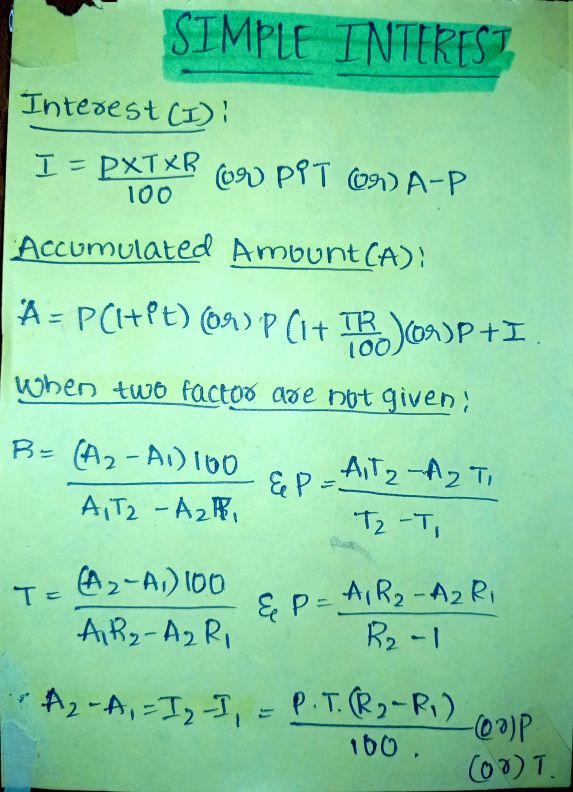 SIMPLE INTEREST
Interest (I):
I = P×T×R/100 (or) PiT (or) A-P
Accumulated Amount (A):
A = P(1+it) (or) P(1+ TR/100) (or) P+I.
When two factor are not given:
R= (A₂-A₁)100/A₁T₂ -A₂T₁ & P = A₁T₂ -A₂ T₁/T₂ -T₁
T = (A₂-A₁)100/A₁R₂-A₂R₁ & P = A₁R₂-A₂R₁/R₂ -1
A₂-A₁ = I₂-I₁ = P.T.(R₂-R₁)/100. (or) P
(or) T.